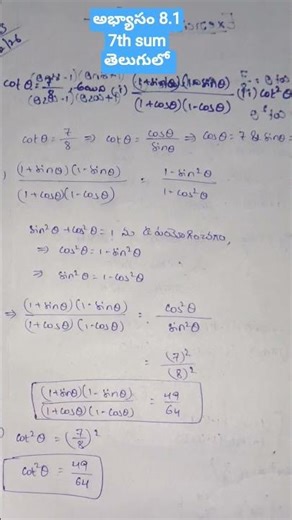 అభ్యాసం 8.1
7th sum
తెలుగులో
cot θ = 7/8, (i) (1+sinθ)(1-sinθ)/(1+cosθ)(1-cosθ) (ii) cot²θ
cotθ = 7/8 ⇒ cotθ = cosθ/sinθ ⇒ cosθ = 7 & sinθ =
) (1+sinθ)(1-sinθ)/(1+cosθ)(1-cosθ) = 1-sin²θ/1-cos²θ
sin²θ + cos²θ = 1
⇒ cos²θ = 1-sin²θ
⇒ sin²θ = 1-cos²θ
⇒ (1+sinθ)(1-sinθ)/(1+cosθ)(1-cosθ) = cos²θ/sin²θ
= (7)²/(8)²
(1+sinθ)(1-sinθ)/(1+cosθ)(1-cosθ) = 49/64
) cot²θ = (7/8)²
cot²θ = 49/64